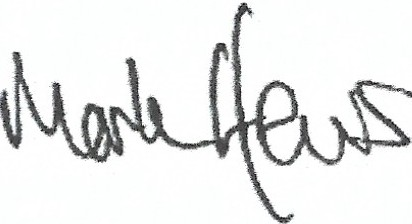 Mark Hews